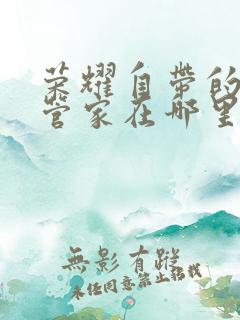 荣耀自带的
管家在哪里
無影有蹤
未经同意禁止搭载